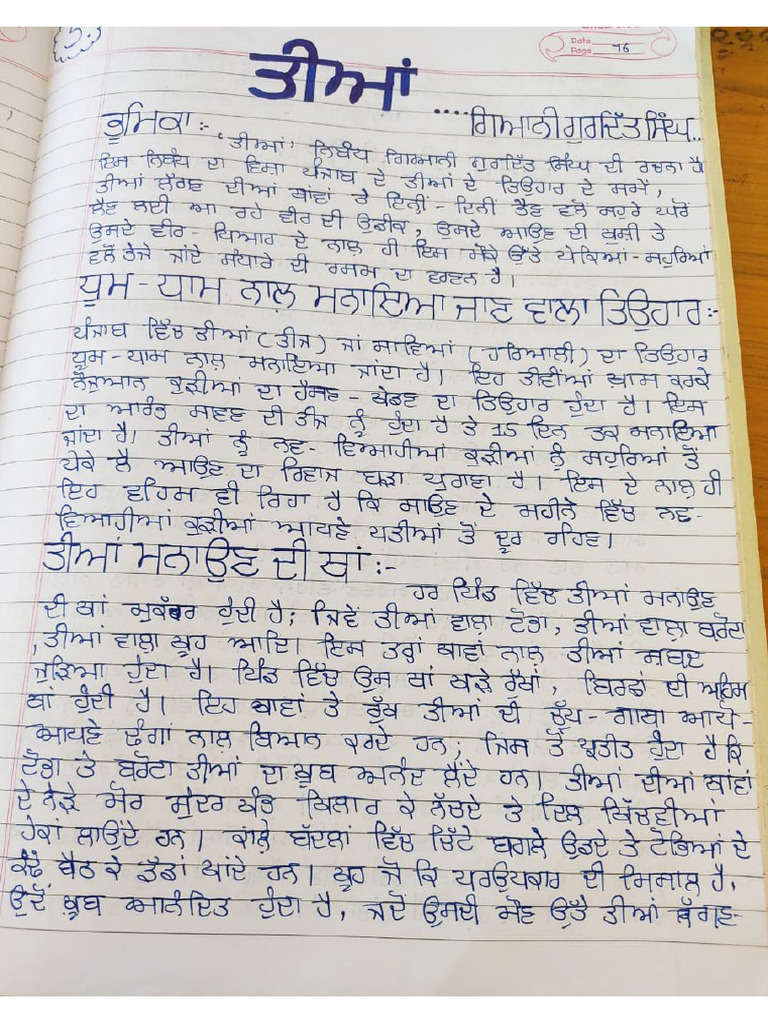 Date
Page 76
ਤੀਆਂ
....ਗਿਆਨੀ ਗੁਰਦਿੱਤ ਸਿੰਘ..
ਭੂਮਿਕਾ:- 'ਤੀਆਂ' ਨਿਬੰਧ ਗਿਆਨੀ ਗੁਰਦਿੱਤ ਸਿੰਘ ਦੀ ਰਚਨਾ ਹੈ
ਇਸ ਨਿਬੰਧ ਦਾ ਵਿਸ਼ਾ ਪੰਜਾਬ ਦੇ ਤੀਆਂ ਦੇ ਤਿਉਹਾਰ ਦੇ ਸਮੇਂ,
ਤੀਆਂ ਲੱਗਣ ਦੀਆਂ ਥਾਂਵਾਂ ਤੇ ਦਿਨੀਂ-ਦਿਨੀਂ ਭੈਣ ਵਲੋਂ ਸਹੁਰੇ ਘਰੋਂ
ਲੈਣ ਲਈ ਆ ਰਹੇ ਵੀਰ ਦੀ ਉਡੀਕ, ਉਸਦੇ ਆਉਣ ਦੀ ਖੁਸ਼ੀ ਤੇ
ਉਸਦੇ ਵੀਰ-ਪਿਆਰ ਦੇ ਨਾਲ ਹੀ ਇਸ ਮੌਕੇ ਉੱਤੇ ਪੇਕਿਆਂ-ਸਹੁਰਿਆਂ
ਵਲੋਂ ਭੇਜੇ ਜਾਂਦੇ ਸੰਧਾਰੇ ਦੀ ਰਸਮ ਦਾ ਵਰਣਨ ਹੈ।
ਧੂਮ-ਧਾਮ ਨਾਲ ਮਨਾਇਆ ਜਾਣ ਵਾਲਾ ਤਿਉਹਾਰ:-
ਪੰਜਾਬ ਵਿੱਚ ਤੀਆਂ (ਤੀਜ) ਜਾਂ ਸਾਵਿਆਂ (ਹਰਿਆਲੀ) ਦਾ ਤਿਉਹਾਰ
ਧੂਮ-ਧਾਮ ਨਾਲ ਮਨਾਇਆ ਜਾਂਦਾ ਹੈ। ਇਹ ਤੀਵੀਂਆਂ ਖਾਸ ਕਰਕੇ
ਨੌਜੁਆਨ ਕੁੜੀਆਂ ਦਾ ਹੱਸਣ-ਖੇਡਣ ਦਾ ਤਿਉਹਾਰ ਹੁੰਦਾ ਹੈ। ਇਸ
ਦਾ ਆਰੰਭ ਸਾਵਣ ਦੀ ਤੀਜ ਨੂੰ ਹੁੰਦਾ ਹੈ ਤੇ 15 ਦਿਨ ਤਕ ਮਨਾਇਆ
ਜਾਂਦਾ ਹੈ। ਤੀਆਂ ਨੂੰ ਨਵ-ਵਿਆਹੀਆਂ ਕੁੜੀਆਂ ਨੂੰ ਸਹੁਰਿਆਂ ਤੋਂ
ਪੇਕੇ ਲੈ ਆਉਣ ਦਾ ਰਿਵਾਜ ਬੜਾ ਪੁਰਾਣਾ ਹੈ। ਇਸ ਦੇ ਨਾਲ ਹੀ
ਇਹ ਵਹਿਮ ਵੀ ਰਿਹਾ ਹੈ ਕਿ ਸਾਉਣ ਦੇ ਮਹੀਨੇ ਵਿੱਚ ਨਵ-
ਵਿਆਹੀਆਂ ਕੁੜੀਆਂ ਆਪਣੇ ਪਤੀਆਂ ਤੋਂ ਦੂਰ ਰਹਿਣ।
ਤੀਆਂ ਮਨਾਉਣ ਦੀ ਥਾਂ:-
ਹਰ ਪਿੰਡ ਵਿੱਚ ਤੀਆਂ ਮਨਾਉਣ
ਦੀ ਥਾਂ ਮੁਕੱਰਰ ਹੁੰਦੀ ਹੈ; ਜਿਵੇਂ ਤੀਆਂ ਵਾਲਾ ਟੋਭਾ, ਤੀਆਂ ਵਾਲਾ ਬਰੋਟਾ
, ਤੀਆਂ ਵਾਲਾ ਖੂਹ ਆਦਿ। ਇਸ ਤਰ੍ਹਾਂ ਥਾਵਾਂ ਨਾਲ ਤੀਆਂ ਸ਼ਬਦ
ਜੁੜਿਆ ਹੁੰਦਾ ਹੈ। ਪਿੰਡ ਵਿੱਚ ਉਸ ਥਾਂ ਖੜ੍ਹੇ ਰੁੱਖਾਂ, ਬਿਰਛਾਂ ਦੀ ਅਹਿਮ
ਥਾਂ ਹੁੰਦੀ ਹੈ। ਇਹ ਥਾਵਾਂ ਤੇ ਰੁੱਖ ਤੀਆਂ ਦੀ ਚੁੱਪ-ਗਾਥਾ ਆਪੋ-
ਆਪਣੇ ਢੰਗਾਂ ਨਾਲ ਬਿਆਨ ਕਰਦੇ ਹਨ; ਜਿਸ ਤੋਂ ਪ੍ਰਤੀਤ ਹੁੰਦਾ ਹੈ ਕਿ
ਟੋਭਾ ਤੇ ਬਰੋਟਾ ਤੀਆਂ ਦਾ ਖੂਬ ਅਨੰਦ ਲੈਂਦੇ ਹਨ। ਤੀਆਂ ਦੀਆਂ ਥਾਂਵਾਂ
ਦੇ ਨੇੜੇ ਮੋਰ ਸੁੰਦਰ ਖੰਭ ਖਿਲਾਰ ਕੇ ਨੱਚਦੇ ਤੇ ਦਿਲ ਖਿੱਚਵੀਆਂ
ਹੇਕਾਂ ਲਾਉਂਦੇ ਹਨ। ਕਾਲੇ ਬੱਦਲਾਂ ਵਿੱਚ ਚਿੱਟੇ ਬਗਲੇ ਉਡਦੇ ਤੇ ਟੋਭਿਆਂ ਦੇ
ਕੰਢੇ ਬੈਠ ਕੇ ਡੱਡਾਂ ਖਾਂਦੇ ਹਨ। ਖੂਹ ਜੋ ਕਿ ਪਰਉਪਕਾਰ ਦੀ ਮਿਸਾਲ ਹੈ,
ਉਦੋਂ ਖੂਬ ਆਨੰਦਿਤ ਹੁੰਦਾ ਹੈ, ਜਦੋਂ ਉਸਦੀ ਮੌਣ ਉੱਤੇ ਤੀਆਂ ਲੱਗਣ-